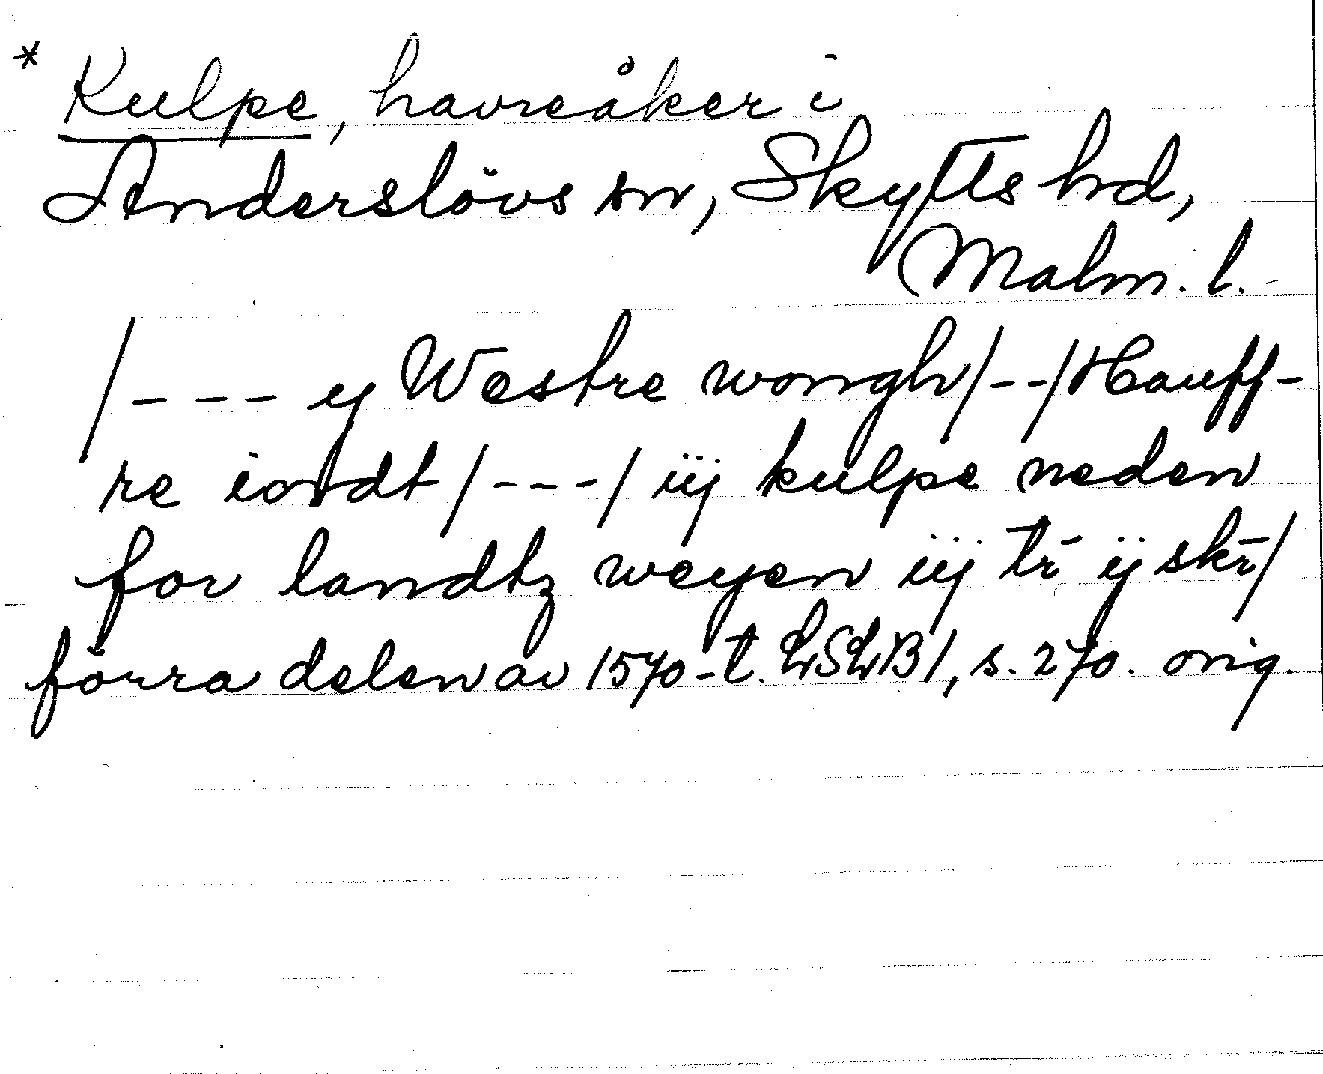 * Kulpe, havreåker i
Anderslövs sn, Skytts hd,
Malm. l.
/--- y Westre wongh/--/Hauff-
re iordt/---/ iij kulpe neden
for landtz weyen iij tr̄ ij skr̄/
förra delen av 1570-t. LSLB1, s. 270. orig.